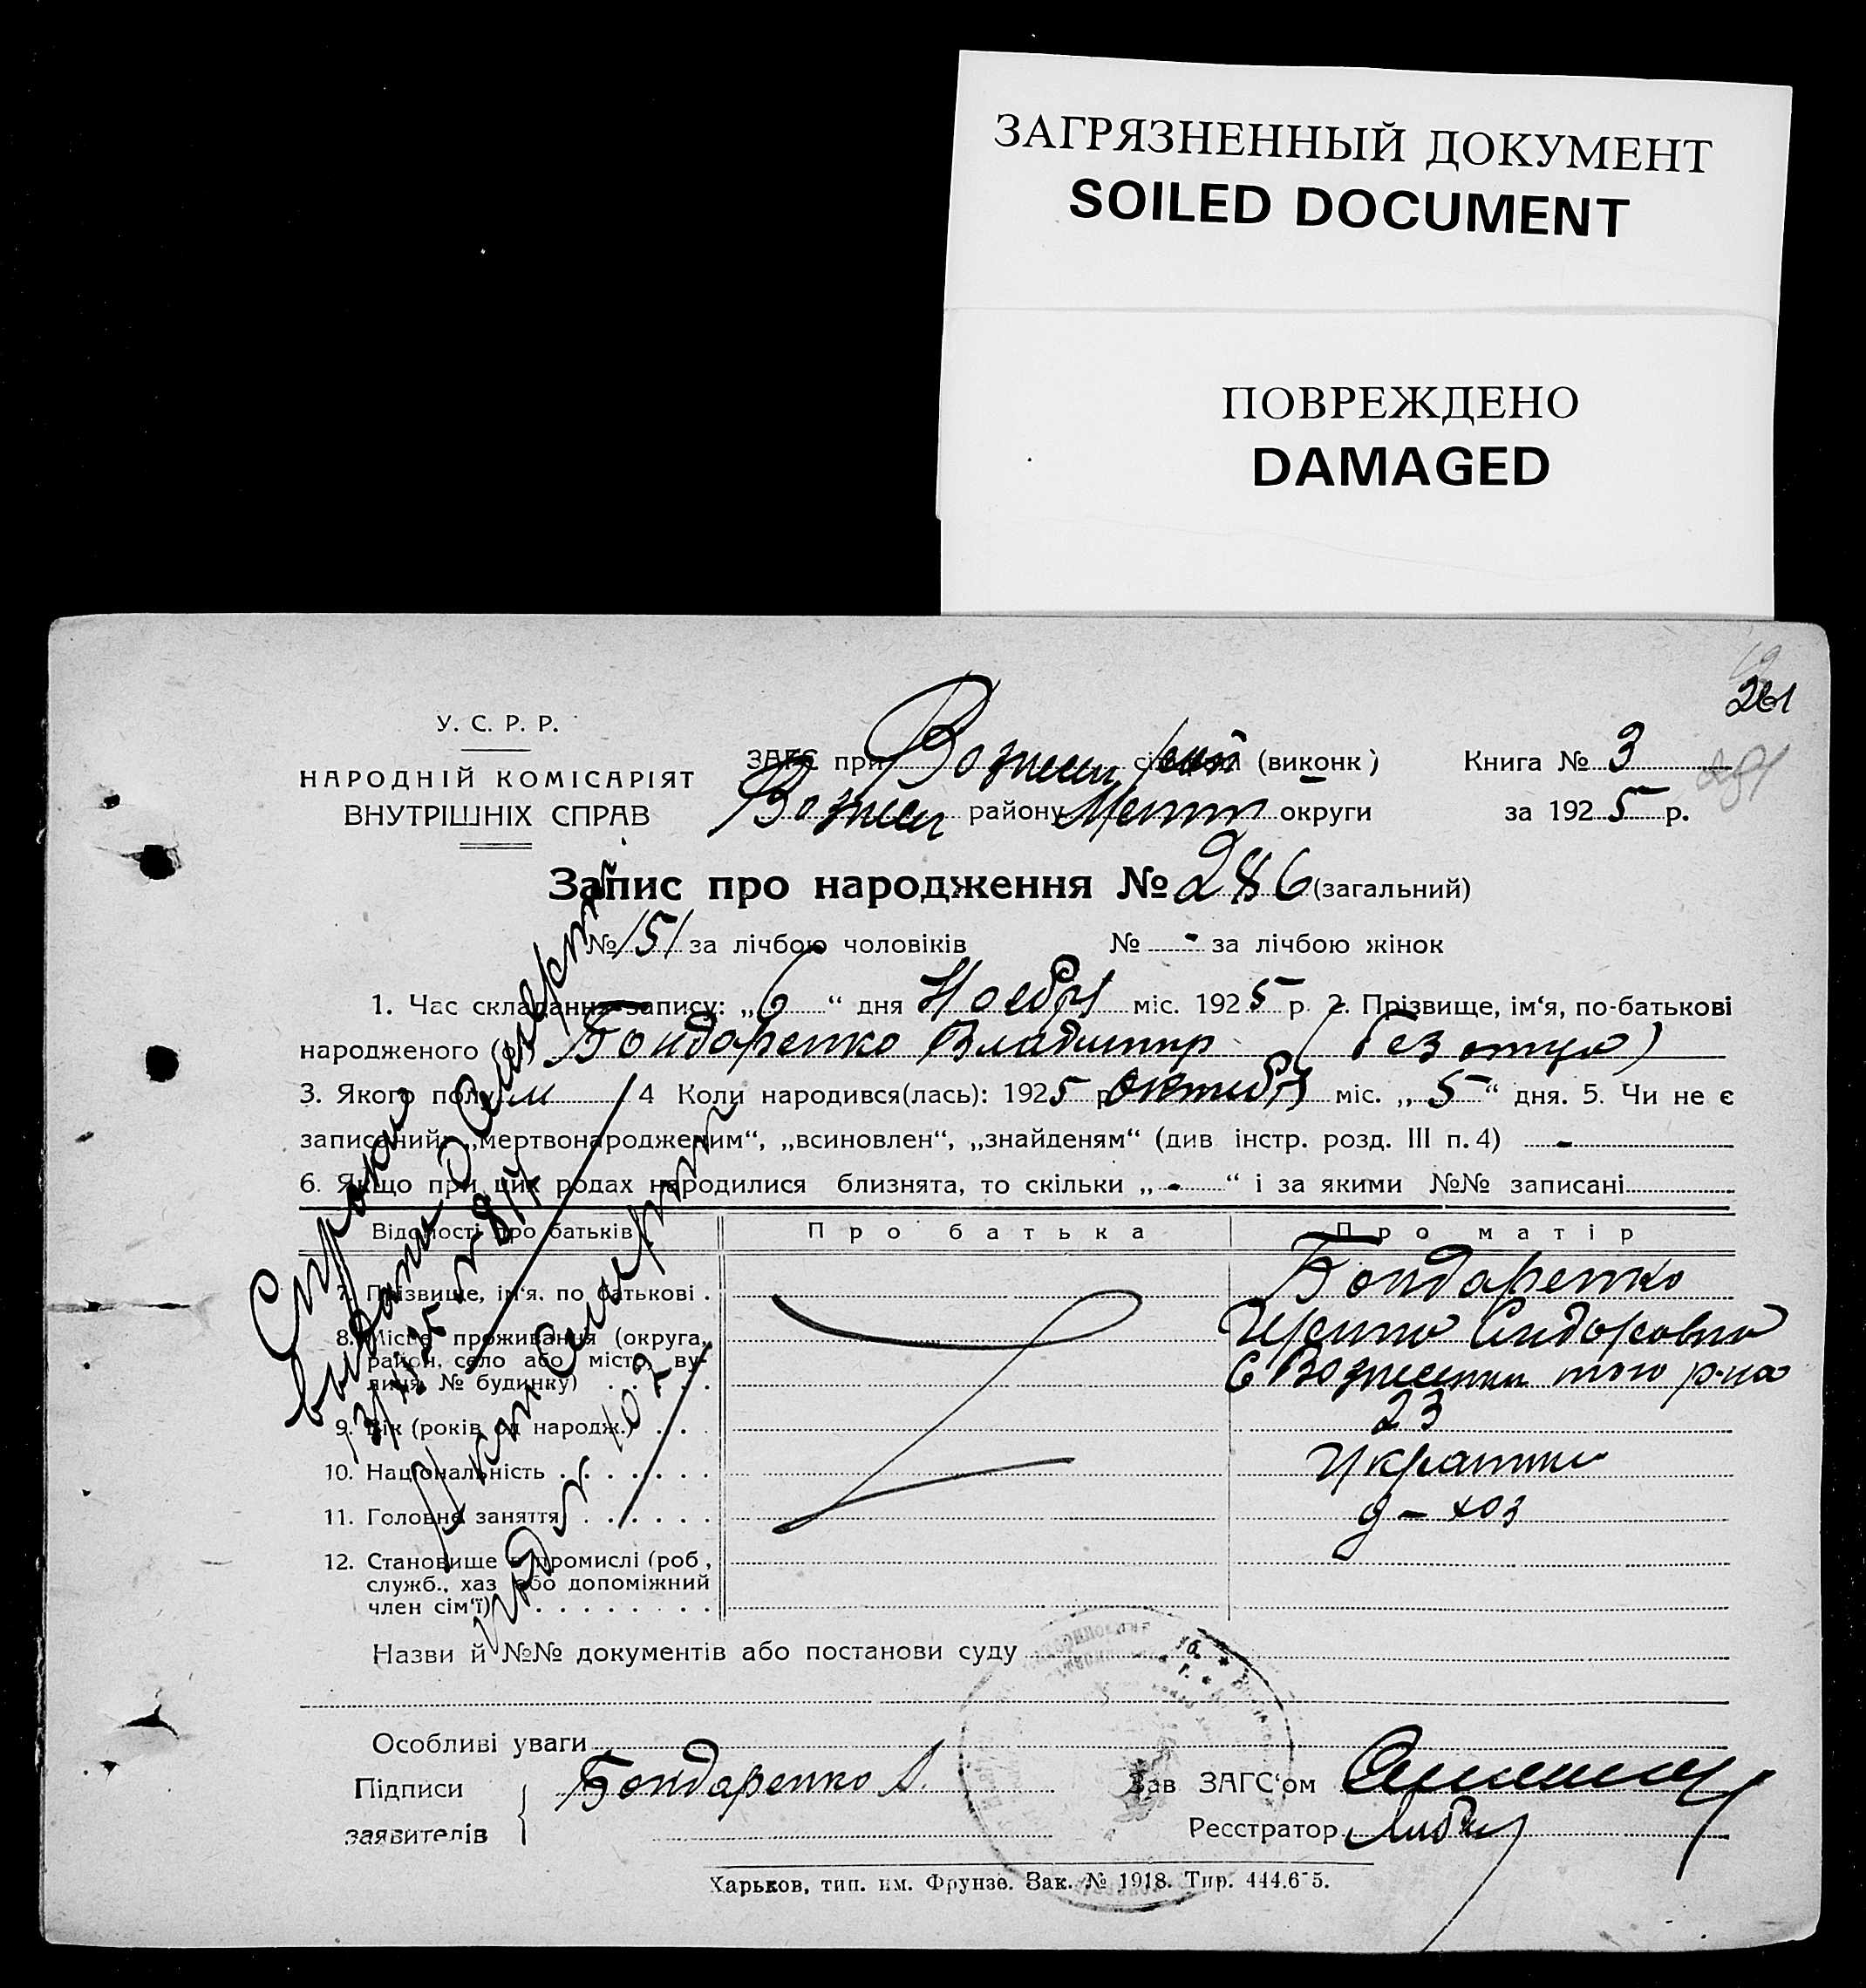 ЗАГРЯЗНЕННЫЙ ДОКУМЕНТ
SOILED DOCUMENT
ПОВРЕЖДЕНО
DAMAGED
261
У. С. Р. Р.
НАРОДНІЙ КОМІСАРІЯТ
ВНУТРІШНІХ СПРАВ
ЗАГС при Вознесен (виконк)
Вознесен району округи
Книга № 3
за 1925 р.
Запис про народження № 286 (загальний)
№ 151 за лічбою чоловіків № - за лічбою жінок
1. Час складання запису: „6“ дня Ноября міс. 1925 р. 2. Прізвище, ім‘я, по-батькові
народженого (ої) Бондаренко Владимир (без отца)
3. Якого полу м 4 Коли народився(лась): 1925 р октября міс. „5“ дня. 5. Чи не є
записаний: „мертвонародженим“, „всиновлен“, „знайденям“ (див інстр. розд. III п. 4) -
6. Якщо при цих родах народилися близнята, то скільки „-“ і за якими №№ записані
Відомості про батьків Про батька Про матір
7. Прізвище, ім‘я, по батькові . Бондаренко
Сидоровна
8. Місце проживання (округа,
район, село або місто, ву-
лиця, № будинку) того р-на
9. Вік (років од народж.) . . . 23
10. Національність . . . . . . .
11. Головне заняття . . . . . . д-хоз
12. Становище в промислі (роб,
служб., хаз або допоміжний
член сім‘ї) . . . . . . . .
Назви й №№ документів або постанови суду
Особливі уваги
Підписи
заявителів
Бондаренко
Зав ЗАГС‘ом
Ресстратор
Харьков, тип. им. Фрунзе. Зак. № 1918. Тир. 444.6
Справка
выдана о смерти
Акт смерти
под № 102